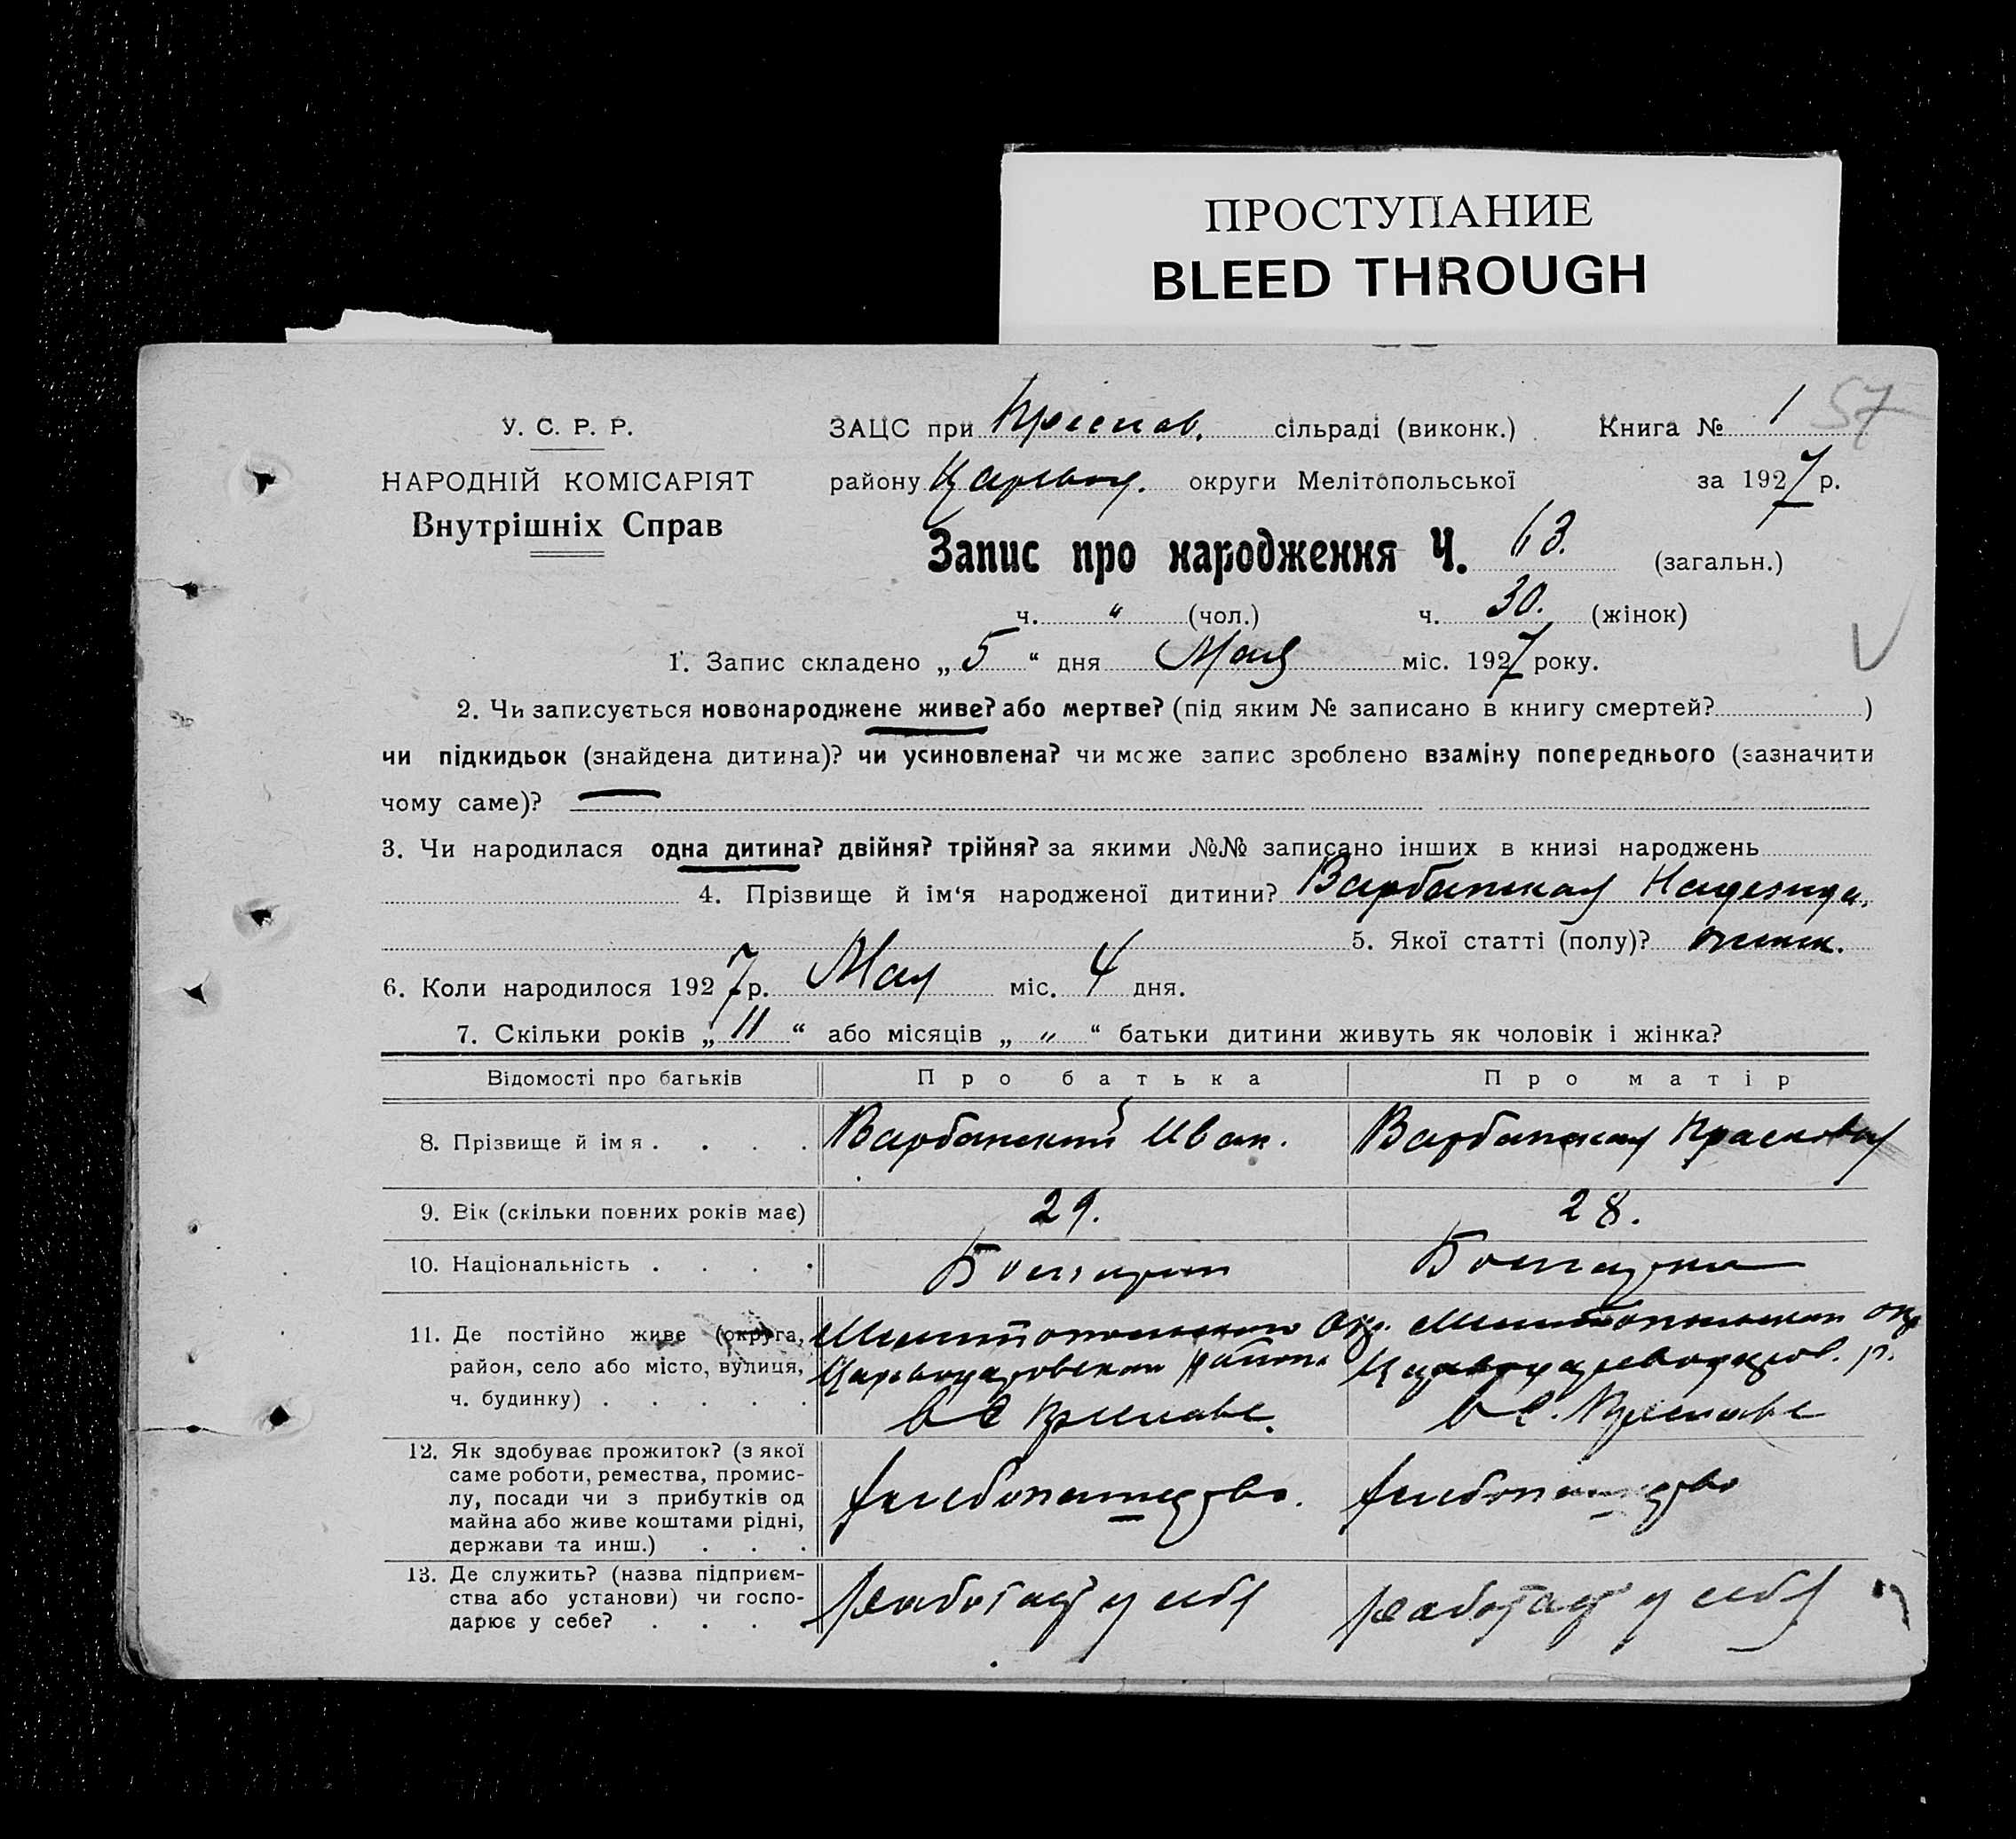 ПРОСТУПАНИЕ
BLEED THROUGH
У. С. Р. Р.
НАРОДНІЙ КОМІСАРІЯТ
Внутрішніх Справ
ЗАЦС при Преслав. сільраді (виконк.) Книга № 1 57
району Царевод. округи Мелітопольської за 1927 р.
Запис про народження Ч. 63. (загальн.)
ч. " (чол.) ч. 30. (жінок)
1. Запис складено „ 5 “ дня Мая міс. 1927 року.
2. Чи записується новонароджене живе? або мертве? (під яким № записано в книгу смертей? )
чи підкидьок (знайдена дитина)? чи усиновлена? чи може запис зроблено взаміну попереднього (зазначити
чому саме)?
3. Чи народилася одна дитина? двійня? трійня? за якими №№ записано інших в книзі народжень
4. Прізвище й ім‘я народженої дитини? Варбанская Надежда.
5. Якої статті (полу)? женск.
6. Коли народилося 1927 р. Мая міс. 4 дня.
7. Скільки років „ 11 “ або місяців „ " “ батьки дитини живуть як чоловік і жінка?
Відомості про батьків Про батька Про матір
8. Прізвище й імя . . . . Варбанский Иван. Варбанская Прасковья
9. Вік (скільки повних років має) 29. 28.
10. Національність . . . . Болгарин Болгарка
11. Де постійно живе (округа, Мелитопольской Окр. Мелитопольской Окр
район, село або місто, вулиця, Цареводаровского района р.
ч. будинку) . . . . . в с Преславе. в с. Преславе
12. Як здобуває прожиток? (з якої
саме роботи, ремества, промис-
лу, посади чи з прибутків од хлебопашество. хлебопашество
майна або живе коштами рідні,
держави та инш.) . . .
13. Де служить? (назва підприєм-
ства або установи) чи госпо- работает у себя работает у себя
дарює у себе? . . . .